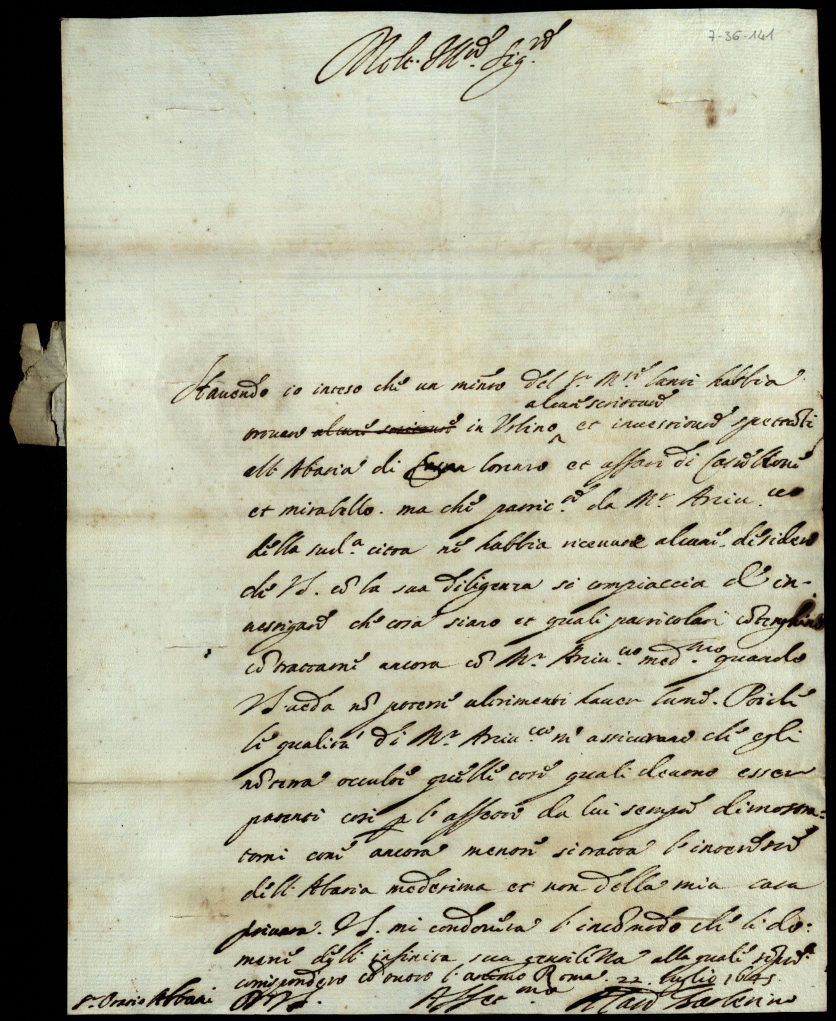 7-36-141
Molt. Ill.re Sig.re
Havendo io inteso che un min.ro del S.r M. Santi habbia
alcune scritture
trovate alcune scritture in Urbino et investiture spettanti
all Abatia di Lorenzo et affari di Castellone
et mirabello. ma che partic.re da M.r Arciv.co
della sud.a citta ne habbia ricevute alcune. desidero
che VS. co la sua diligenza si compiaccia d'in-
vestigare che cosa siano et quali particolari contenghino
co trattarne ancora co M.r Arciv.co med.mo quando
VS. veda no poterne altrimenti haver lume. Poiche
le qualita di M.r Arciv.co m'assicurano che egli
no terra occulte quelle cose quali devono esser
patenti cosi p l'affetto da lui sempre dimostra-
tomi come ancora mentre si tratta l'interesse
dell Abatia medesima et non della mia casa
privata. VS. mi condonera l'incomodo che le do:
mani dell infinita sua gentilezza alla quale
corrispondero co tutto l'animo Roma 22. luglio 1645
S.r Oratio Albani
Di VS. Aff.et mo Barberino